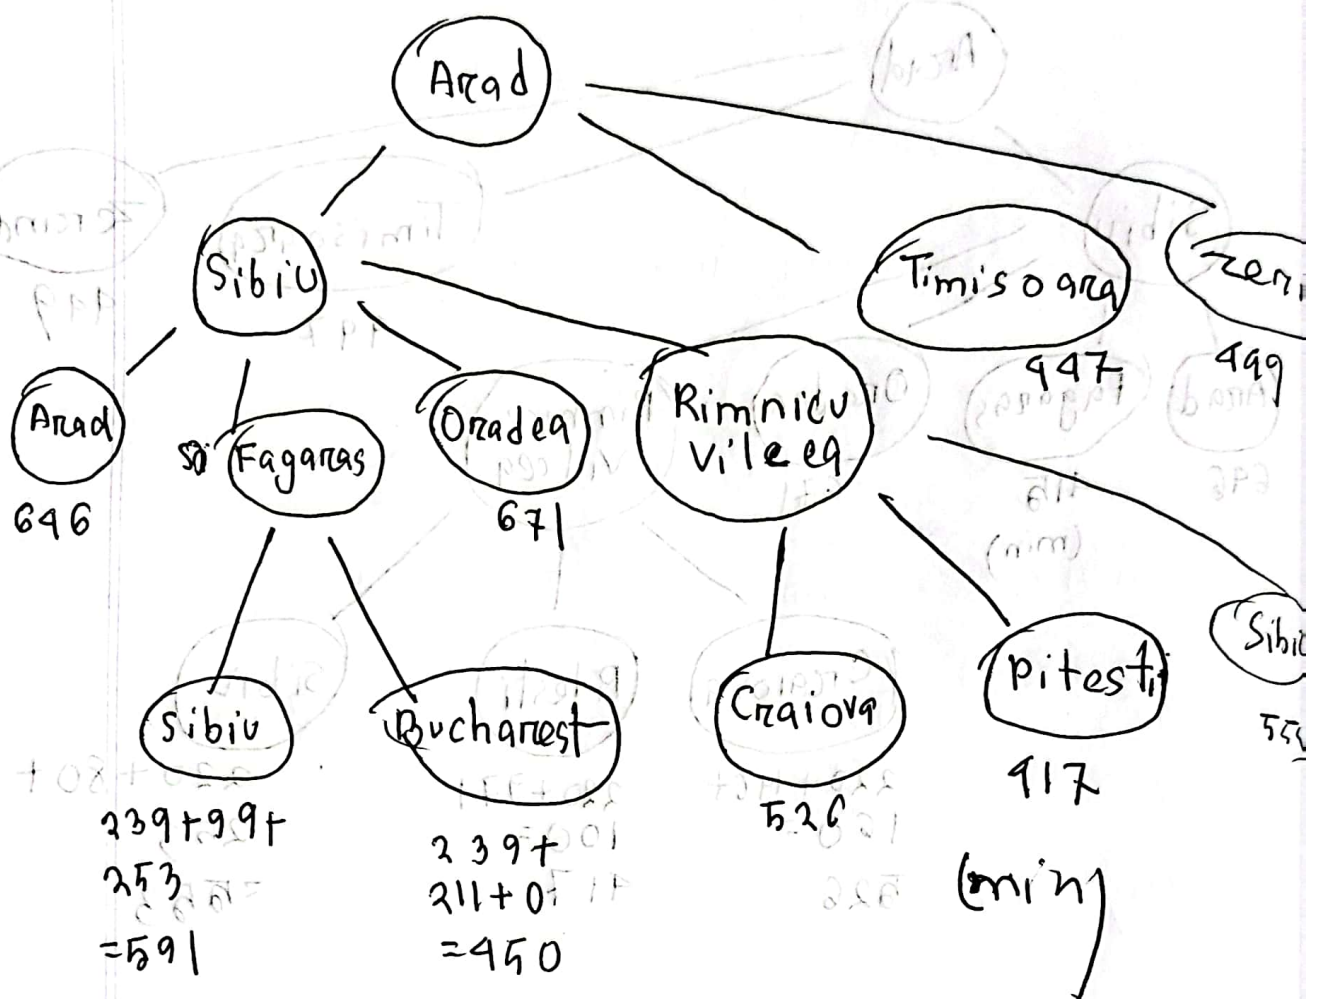 Arad
Sibiu
Timisoara
zeri
447
499
Arad
Fagaras
Oradea
Rimnicu
vileea
646
671
Sibiu
Bucharest
Craiova
pitesti
Sibiu
239+99+
253
=591
239+
211+0
=450
526
417
(min)